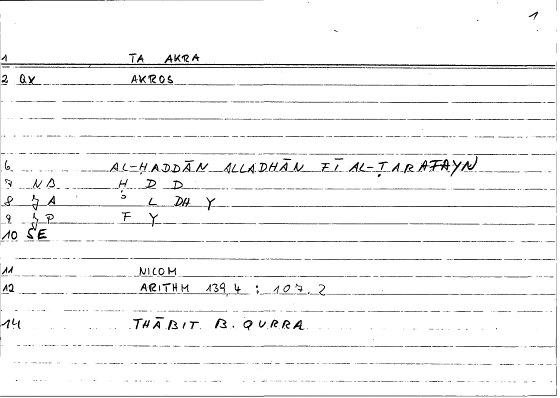 1
1 TA AKRA
2 QX AKROS
6 AL-ḤADDĀN ALLADHĀN FĪ AL-ṬARAFAYN
7 ND Ḥ D D
8 A L DH Y
9 P F Y
10 SE
11 NICOM
12 ARITHM 139,4 : 107.2
14 THĀBIT B. QURRA